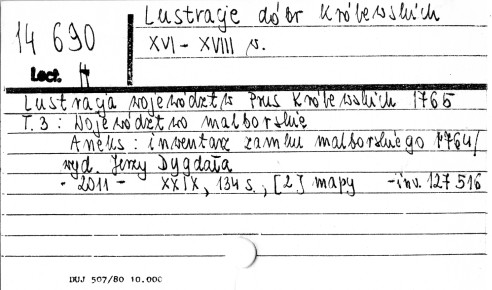 Lustracje dóbr Królewskich
14 690
XVI - XVIII w.
Lect. H
Lustracja województw Prus Królewskich 1765
T. 3 : Województwo malborskie
Aneks : inwentarz zamku malborskiego 1764 /
wyd. Jerzy Dygdała
- 2011 - XXIX, 134 s., [2] mapy - inw. 127 516
DUJ 507/80 10.000